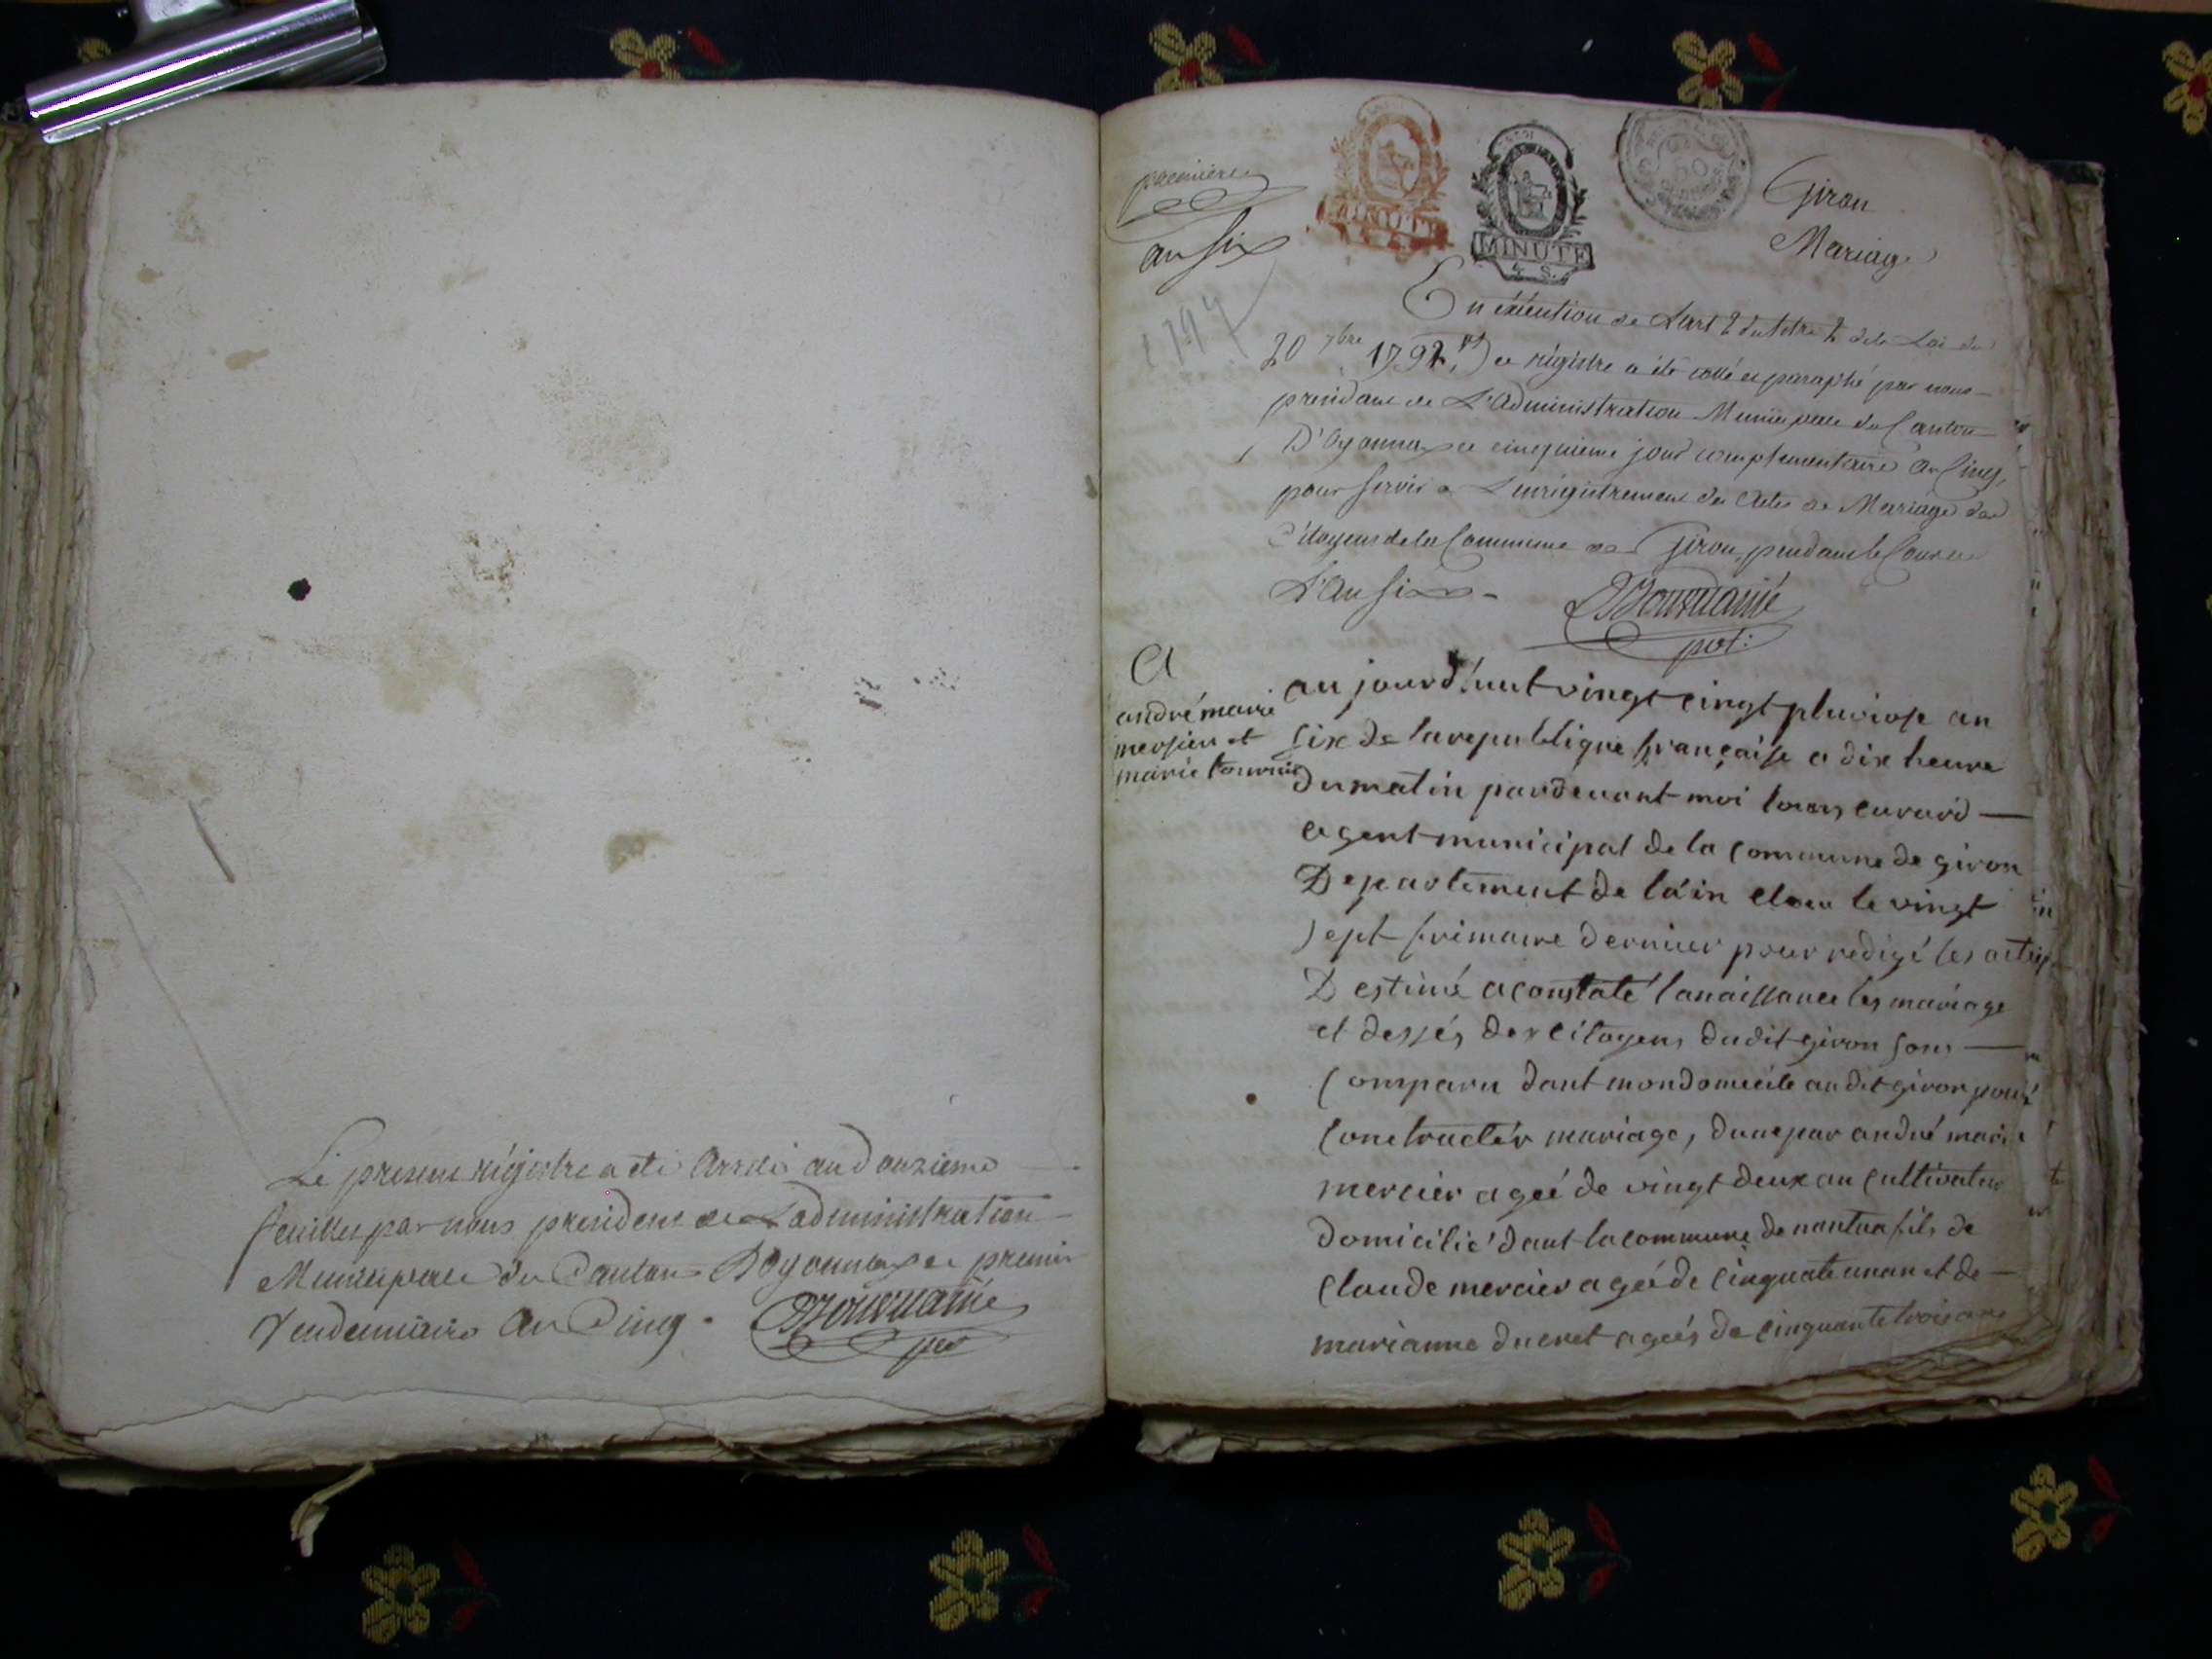 Le present régistre a eté Arreté au douzieme
feuillet par nous president de L'administration
Municipale du Canton D'oyonnax ce premier
Vendemiaire An Cinq.
premiere
an six
1797
MINUTE
MINUTE
4 S.
Giron
Mariage
En éxécution de L'art 2 du titre 2 de la Loi du
20 7bre 1792, ce régistre a été cotté et paraphé par nous
president de L'Administration Municipale du Canton
D'Oyonnax ce cinquieme jour complementaire An Cinq,
pour servir a L'enrégistrement des Actes de Mariage des
Citoyens de la Commune de Giron, pendant le Cours de
L'An Six
A
andré marie
mersier et
marie
au jourd'huit vingt cingt pluviose an
six de la republique française a dix heure
du matin pardevant moi louis
agent municipal de la commune de giron
Departement de l'ain eleu le vingt
sept frimaire dernier pour redigé les actes
Destiné a constaté la naissance les mariage
et dessés des citoyens dudit giron sons
comparu dant mon domicile audit giron pour
contracter mariage, dune par andré marie
mercier ageé de vingt deux an cultivateur
domicilié dant la commune de nantua fils de
claude mercier ageé de cinquate unan et de
marianne ducret ageés de cinquante trois ans